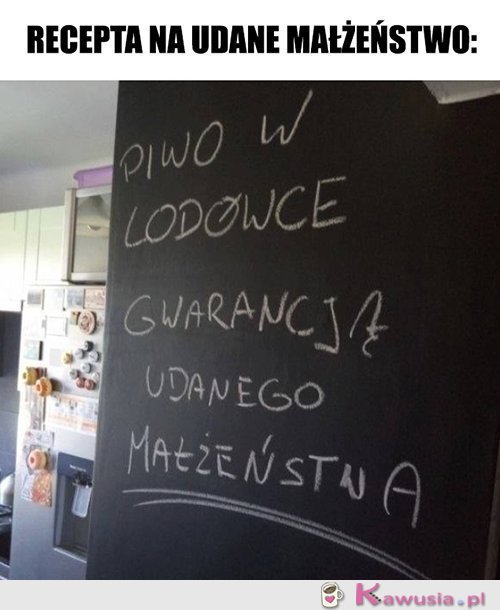 RECEPTA NA UDANE MAŁŻEŃSTWO:
PIWO W
LODÓWCE
GWARANCJĄ
UDANEGO
MAŁŻEŃSTWA
Kawusia.pl